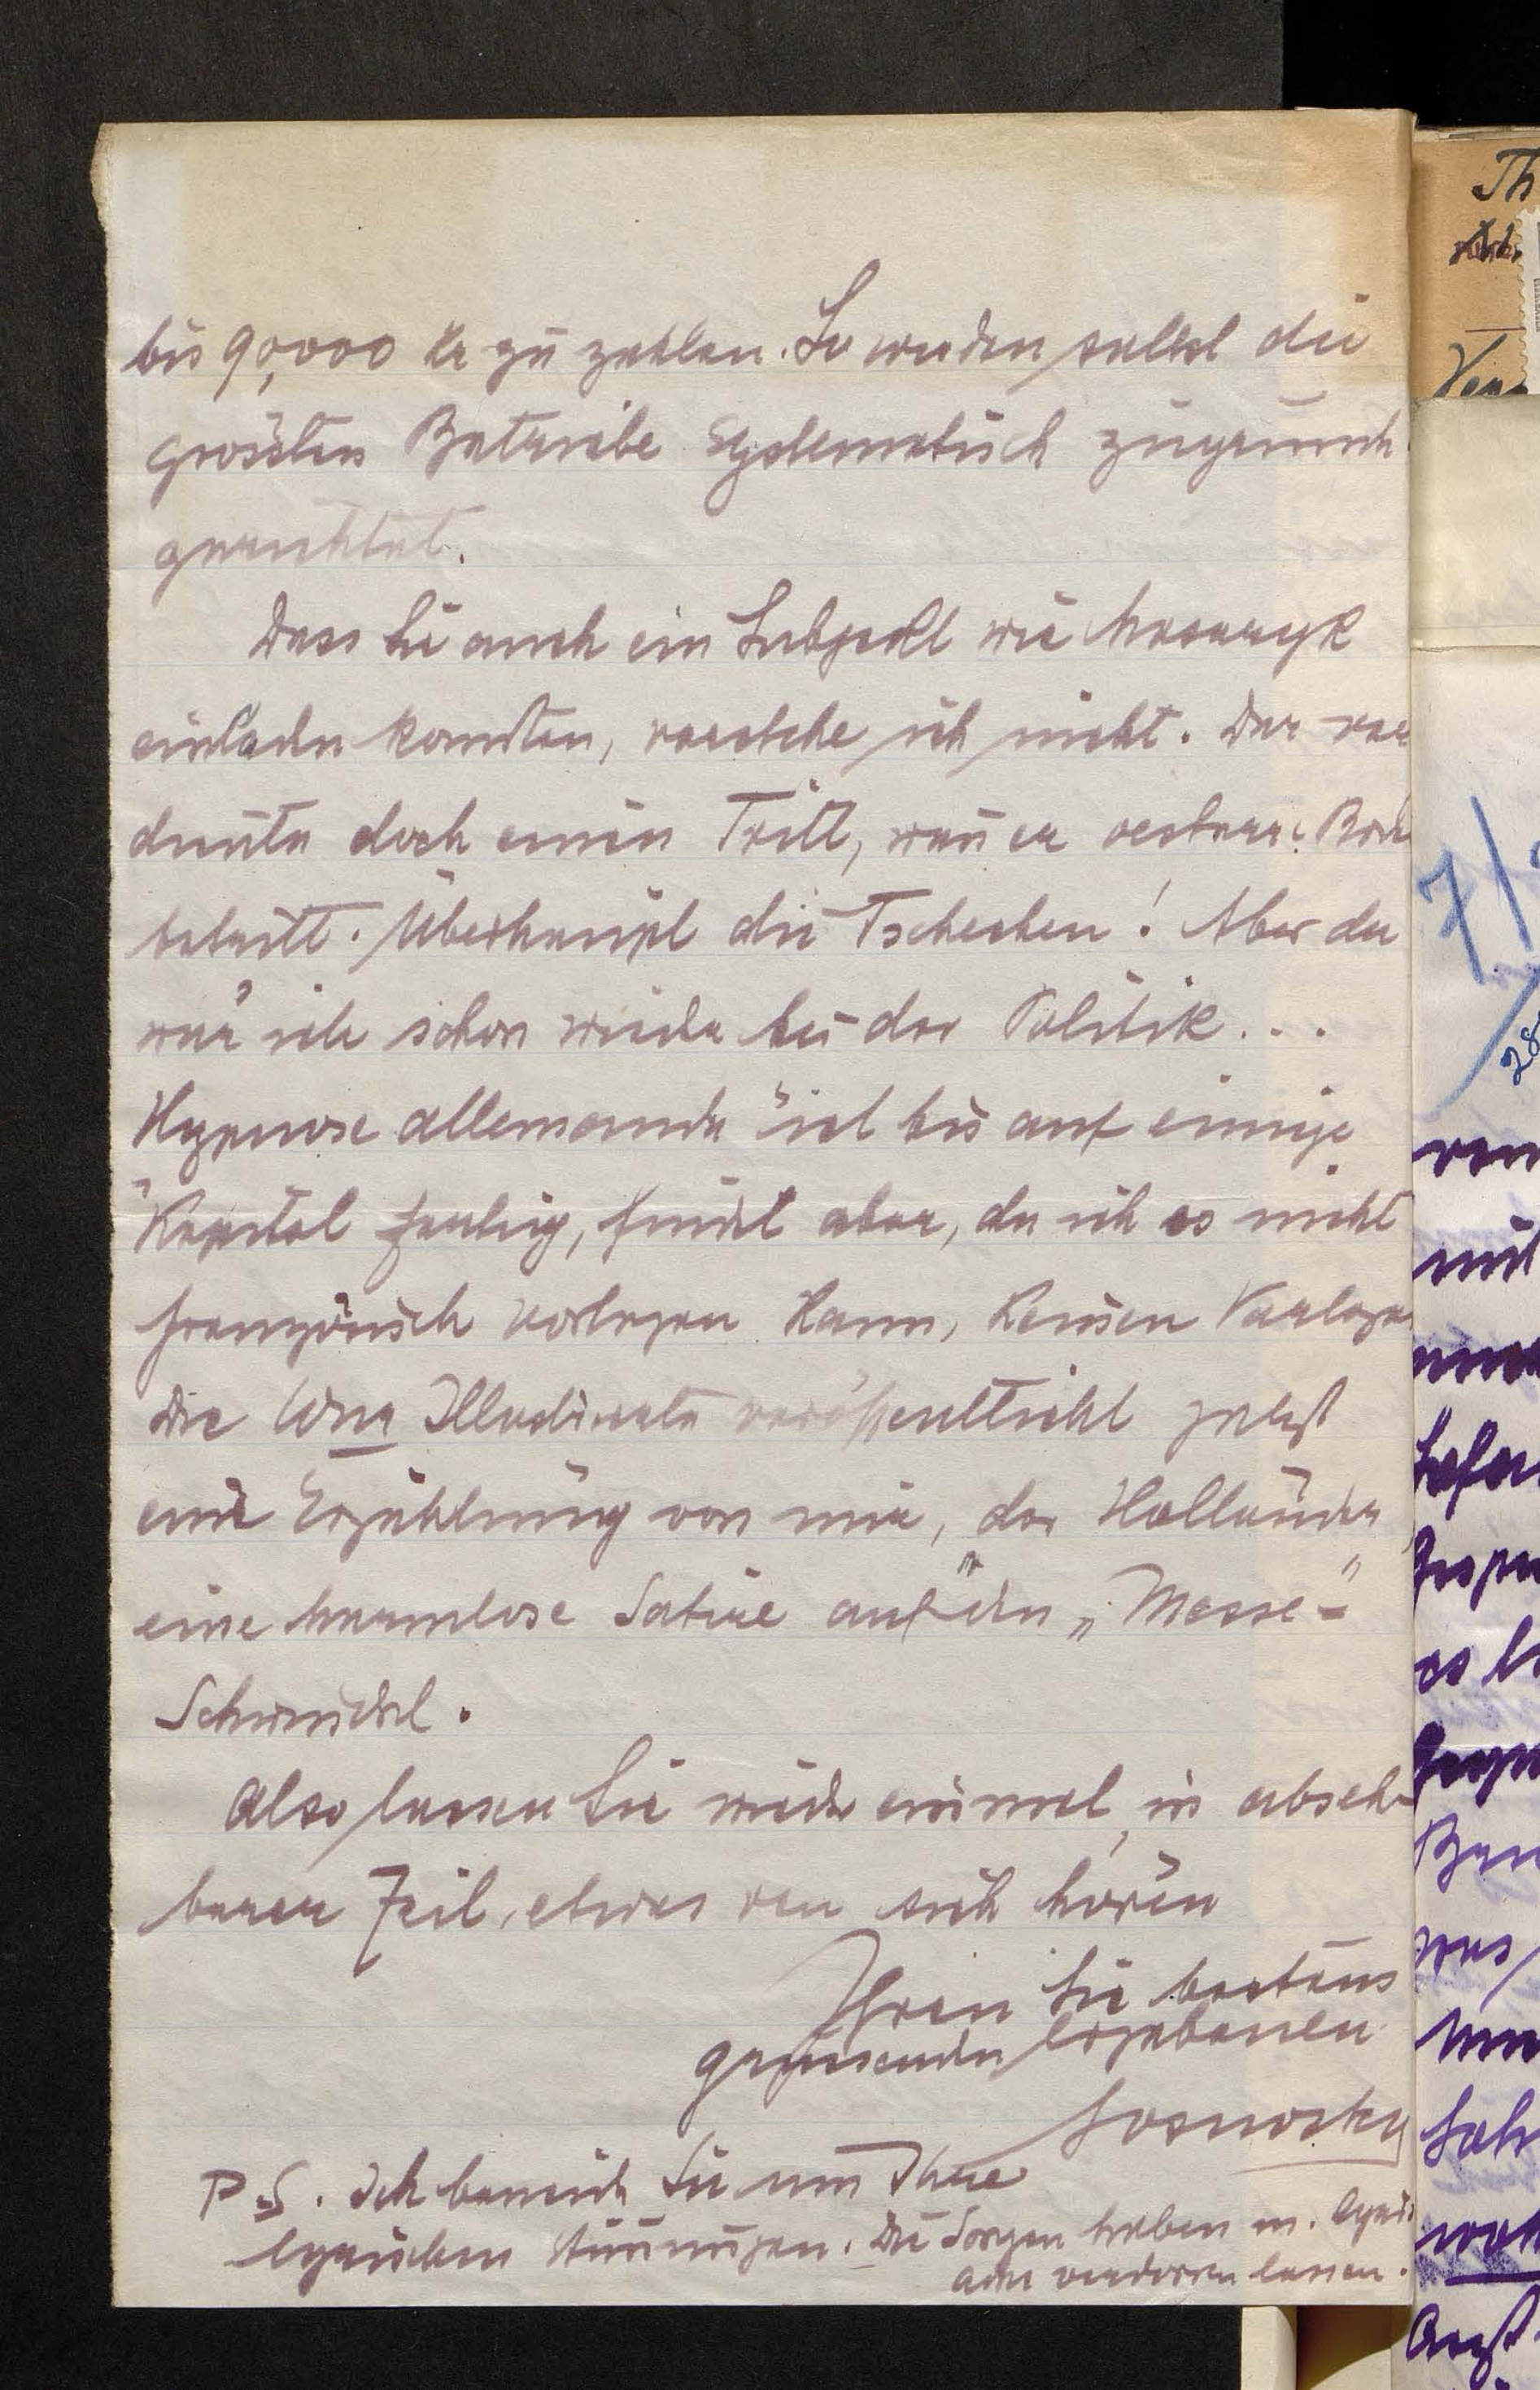 bis 90,000 Kr zu zahlen. So werden selbst die
grössten Betriebe systematisch zugrunde
gerichtet.
Dass Sie auch ein Subjekt wie Masaryk
einladen konnten, verstehe ich nicht. Der ver
diente doch einen Tritt, wen̄ er oesterr. Bod
betritt. Überhaupt die Tschechen! Aber da
wär ich schon wieder bei der Politik...
Hypnose allemande" ist bis auf einige
Kapitel fertig, findet aber, da ich es nicht
französisch vorlegen kann, keinen Verleger
Die Wnr Illustrierte veröffentlicht jetzt
eine Erzählung von mir, der Holländer,
eine harmlose Satire auf den „Messe-"
Schwindel.
Also lassen Sie wieder einmal, in abseh-
barer Zeit, etwas von sich hören
Ihren Sie bestens
grüssenden ergebenen
Sosnosky
P.S. Ich beneide Sie um Ihre
lyrischen Stim̄ungen. Die Sorgen haben m. lyris
Ader verdorren lassen.
Th
7/
28
ven
mit
es
was